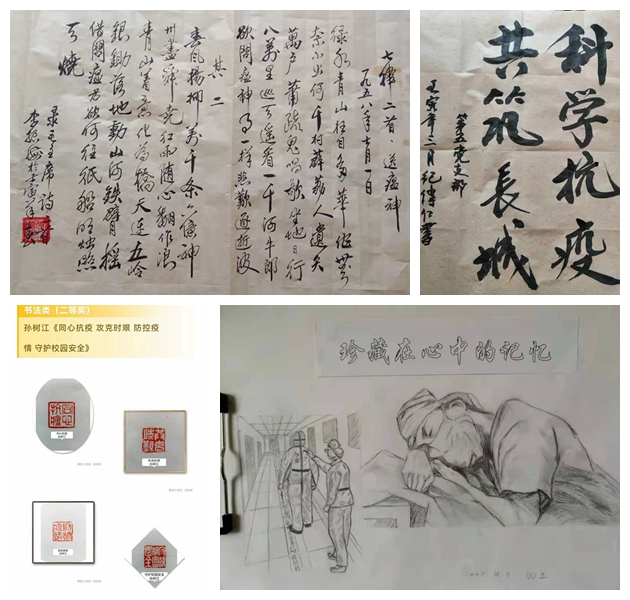 七律二首 送瘟神
一九五八年七月一日
绿水青山枉自多華佗無
奈小虫何千村薜荔人遺矢
萬户蕭疏鬼唱歌坐地日行
八萬里巡天遥看一千河牛郎
欲問瘟神事一样悲歡逐逝波
其二
春風楊柳萬千条六億神
州盡舜堯红雨随心翻作浪
青山着意化為橋天连五岭
銀鋤落地動山河鐵臂摇
借問瘟君欲何往纸船明烛照
天燒
录毛主席诗二首
科学抗疫
共筑長城
第五党支部
壬寅年二月
书法类（二等奖）
孙树江《同心抗疫 攻克时艰 防控疫
情 守护校园安全》
珍藏在心中的记忆